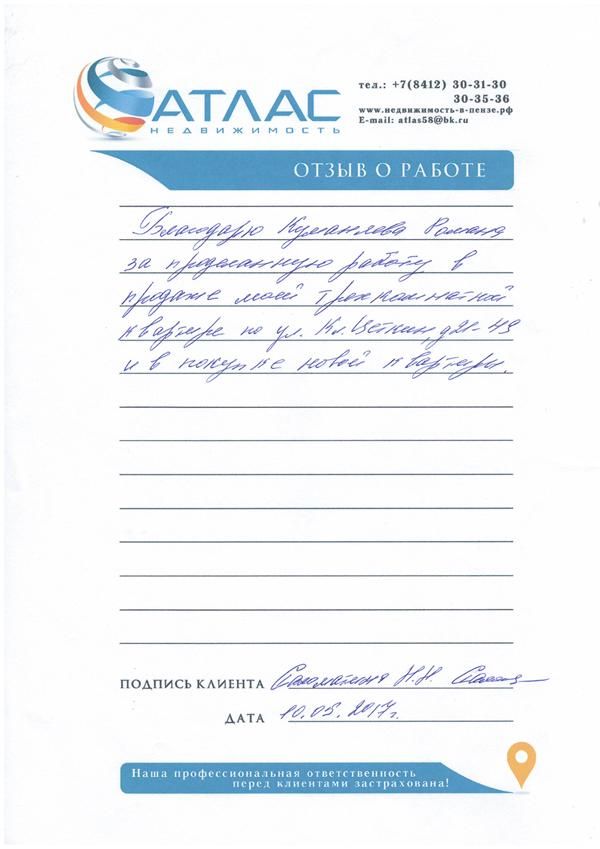 АТЛАС
НЕДВИЖИМОСТЬ
тел.: +7(8412) 30-31-30
30-35-36
www.недвижимость-в-пензе.рф
E-mail: atlas58@bk.ru
ОТЗЫВ О РАБОТЕ
Благодарю Куманяева Романа
за проделанную работу в
продаже моей трехкомнатной
квартире по ул. Кл. Цеткин, д 21-49
и в покупке новой квартиры.
ПОДПИСЬ КЛИЕНТА Саломатина Н.Н.
ДАТА 10.05.2017г.
Наша профессиональная ответственность
перед клиентами застрахована!